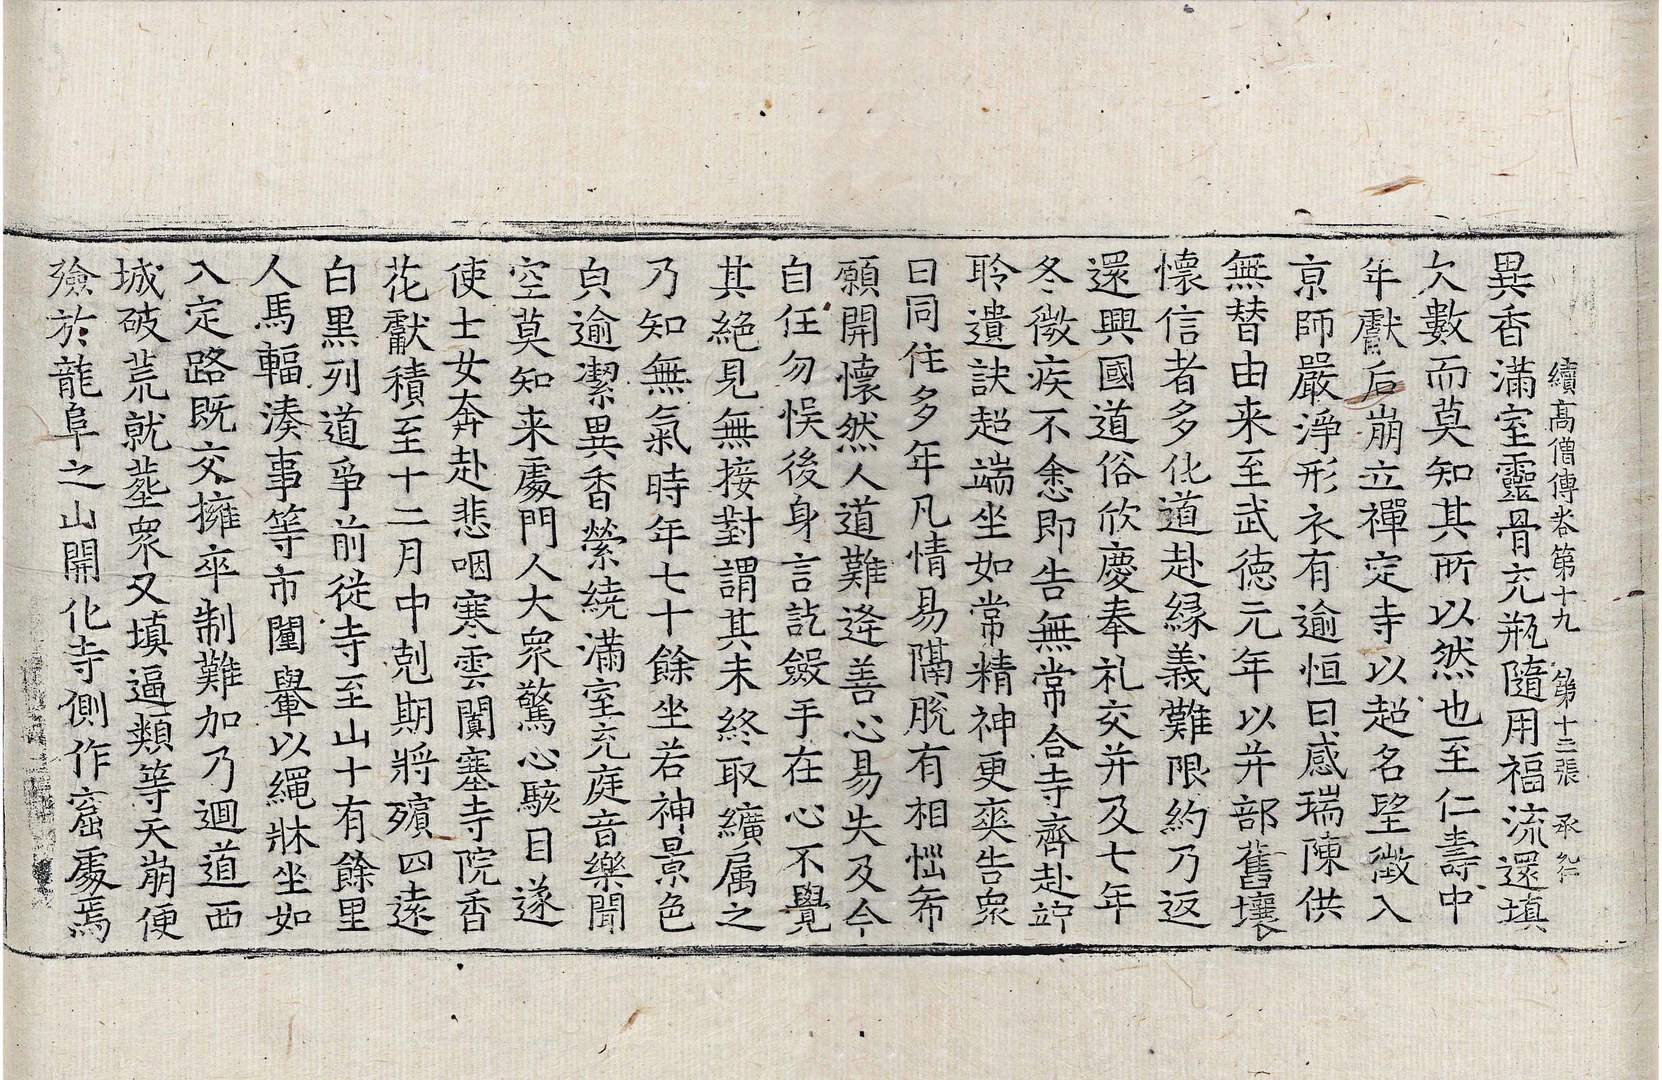 續高僧傳卷第十九　第十三張　承
異香滿室靈骨充瓶隨用福流還填
欠數而莫知其所以然也至仁壽中
年獻后崩立禪定寺以超名望徵入
京師嚴淨形衣有逾恒日感瑞陳供
無替由来至武德元年以并部舊壤
懷信者多化道赴緣義難限約乃返
還興國道俗欣慶奉礼交并及七年
冬微疾不悆即告無常合寺齊赴竚
聆遺訣超端坐如常精神更爽告衆
曰同住多年凡情易隔脫有相惱希
願開懷然人道難逢善心易失及今
自任勿悮後身言訖斂手在心不覺
其絕見無接對謂其未終取纊属之
乃知無氣時年七十餘坐若神景色
皃逾潔異香縈繞滿室充庭音樂聞
空莫知来處門人大衆驚心駭目遂
使士女奔赴悲咽寒雲闐塞寺院香
花獻積至十二月中剋期將殯四遠
白黒列道爭前從寺至山十有餘里
人馬輻湊事等市闤轝以繩牀坐如
入定路既交擁卒制難加乃迴道西
城破荒就塟衆又填逼類等天崩便
殮於龍阜之山開化寺側作窟處焉